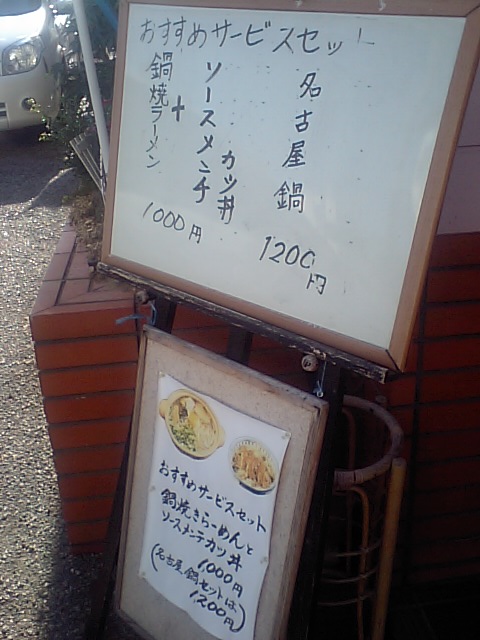 おすすめサービスセット
名古屋鍋
1200円
ソースメンチ
カツ丼
鍋焼ラーメン
+
1000円
おすすめサービスセット
鍋焼きらーめんと
ソースメンチカツ丼
1000円
(名古屋鍋セットは
1200円)